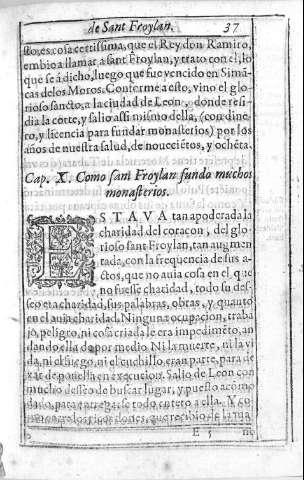 de Sant Froylan. 37
sto, es cosa certissima, que el Rey don Ramiro,
embio a llamar a sant Froylan, y trato con el, lo
que se à dicho, luego que fue vencido en Simā
cas de los Moros. Conforme a esto, vino el glo
rioso sancto, a la ciudad de Leon, donde resi
dia la corte, y salio assi mismo della, (con dine
ro, y licencia para fundar monasterios) por los
años de nuestra salud, de noucciētos, y ochēta.
Cap. X. Como sant Froylan fundo muchos
monasterios.
ESTAVA tan apoderada la
charidad del coraçon, del glo
rioso sant Froylan, tan augmen
tada, con la frequencia de sus a-
ctos, que no auia cosa en el que
no fuesse charidad, todo su de-
sseo era charidad, sus palabras, obras, y quanto
en el auia charidad. Ninguna ocupacion, traba
jo, peligro, ni cosa criada le era impedimēto, an
dando ella de por medio. Ni la muerte, ni la vi
da, ni el fuego, ni el cuchillo, eran parte, para de
xar de ponella en execucion. Salio de Leon con
mucho desseo de buscar lugar, y puesto acomo
dado, para entregarse todo entero a ella. Y co
mo los rios, que recibio de la
E 5